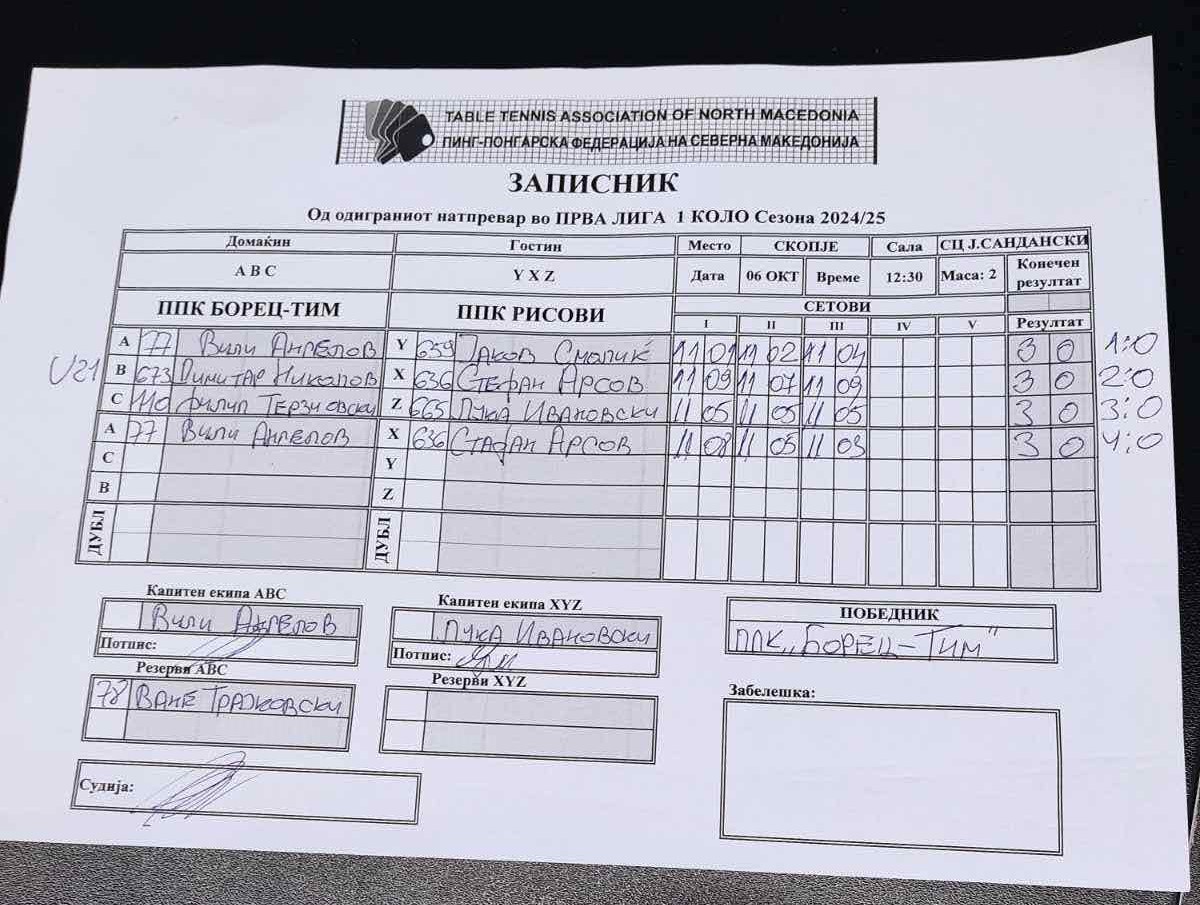 TABLE TENNIS ASSOCIATION OF NORTH MACEDONIA
ПИНГ-ПОНГАРСКА ФЕДЕРАЦИЈА НА СЕВЕРНА МАКЕДОНИЈА
ЗАПИСНИК
Од одиграниот натпревар во ПРВА ЛИГА 1 КОЛО Сезона 2024/25
Домаќин Гостин Место СКОПЈЕ Сала СЦ Ј.САНДАНСКИ
A B C Y X Z Дата 06 ОКТ Време 12:30 Маса: 2 Конечен резултат
ППК БОРЕЦ-ТИМ ППК РИСОВИ СЕТОВИ
I II III IV V Резултат
A 77 Вили Ангелов Y 659 Јаков Смопиќ 11 01 11 02 11 04 3 0 1:0
U21 B 673 Димитар Николов X 636 Стефан Арсов 11 09 11 07 11 09 3 0 2:0
C 110 Филип Терзиовски Z 665 Лука Ивановски 11 05 11 05 11 05 3 0 3:0
A 77 Вили Ангелов X 636 Стафан Арсов 11 08 11 05 11 03 3 0 4:0
C Y
B Z
ДУБЛ ДУБЛ
Капитен екипа ABC Капитен екипа XYZ ПОБЕДНИК
Вили Ангелов Лука Ивановски ППК „БОРЕЦ-ТИМ"
Потпис: Потпис:
Резерви ABC Резерви XYZ Забелешка:
78 Ване Трајковски
Судија: